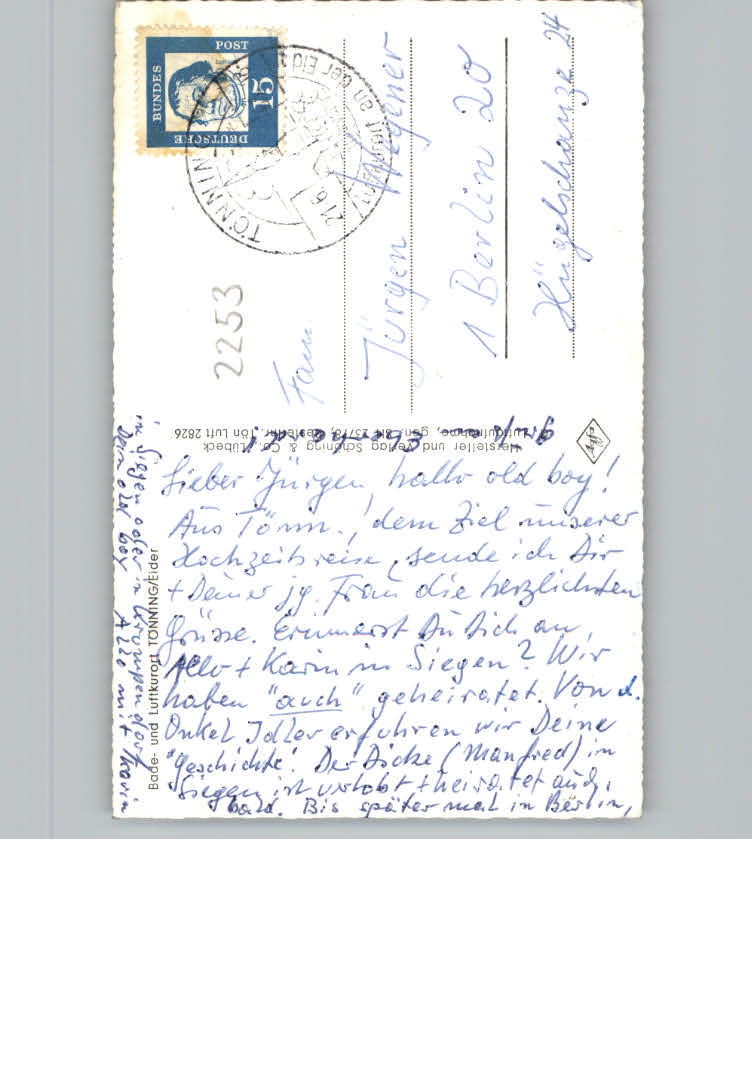 DEUTSCHE
BUNDES
POST
15
TÖNNING
an der Eider
21.6
2253
Fam.
Jürgen Wegener
1 Berlin 20
Hügelschanze 24
Hersteller und Verlag Schöning & Co., Lübeck
Luftaufnahme, gen. SH 237/6, Bestellnr. Tön Luft 2826
Bade- und Luftkurort TÖNNING/Eider
Lieber Jürgen, hallo old boy!
Aus Tönn., dem Ziel unserer
Hochzeitsreise, sende ich Dir
+ Deiner jg. Frau die herzlichsten
Grüsse. Erinnerst Du Dich an
Allo + Karin in Siegen? Wir
haben "auch" geheiratet. Von d.
Onkel Idler erfuhren wir Deine
"Geschichte". Der Dicke (Manfred) in
Siegen ist verlobt + heiratet auch
bald. Bis später mal in Berlin,
in Siegen oder in
Dein old boy Allo mit Karin